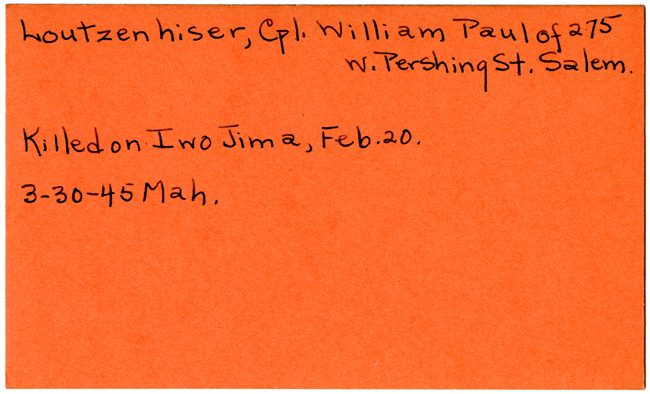 Loutzenhiser, Cpl. William Paul of 275
W. Pershing St. Salem.
Killed on Iwo Jima, Feb. 20.
3-30-45 Mah.